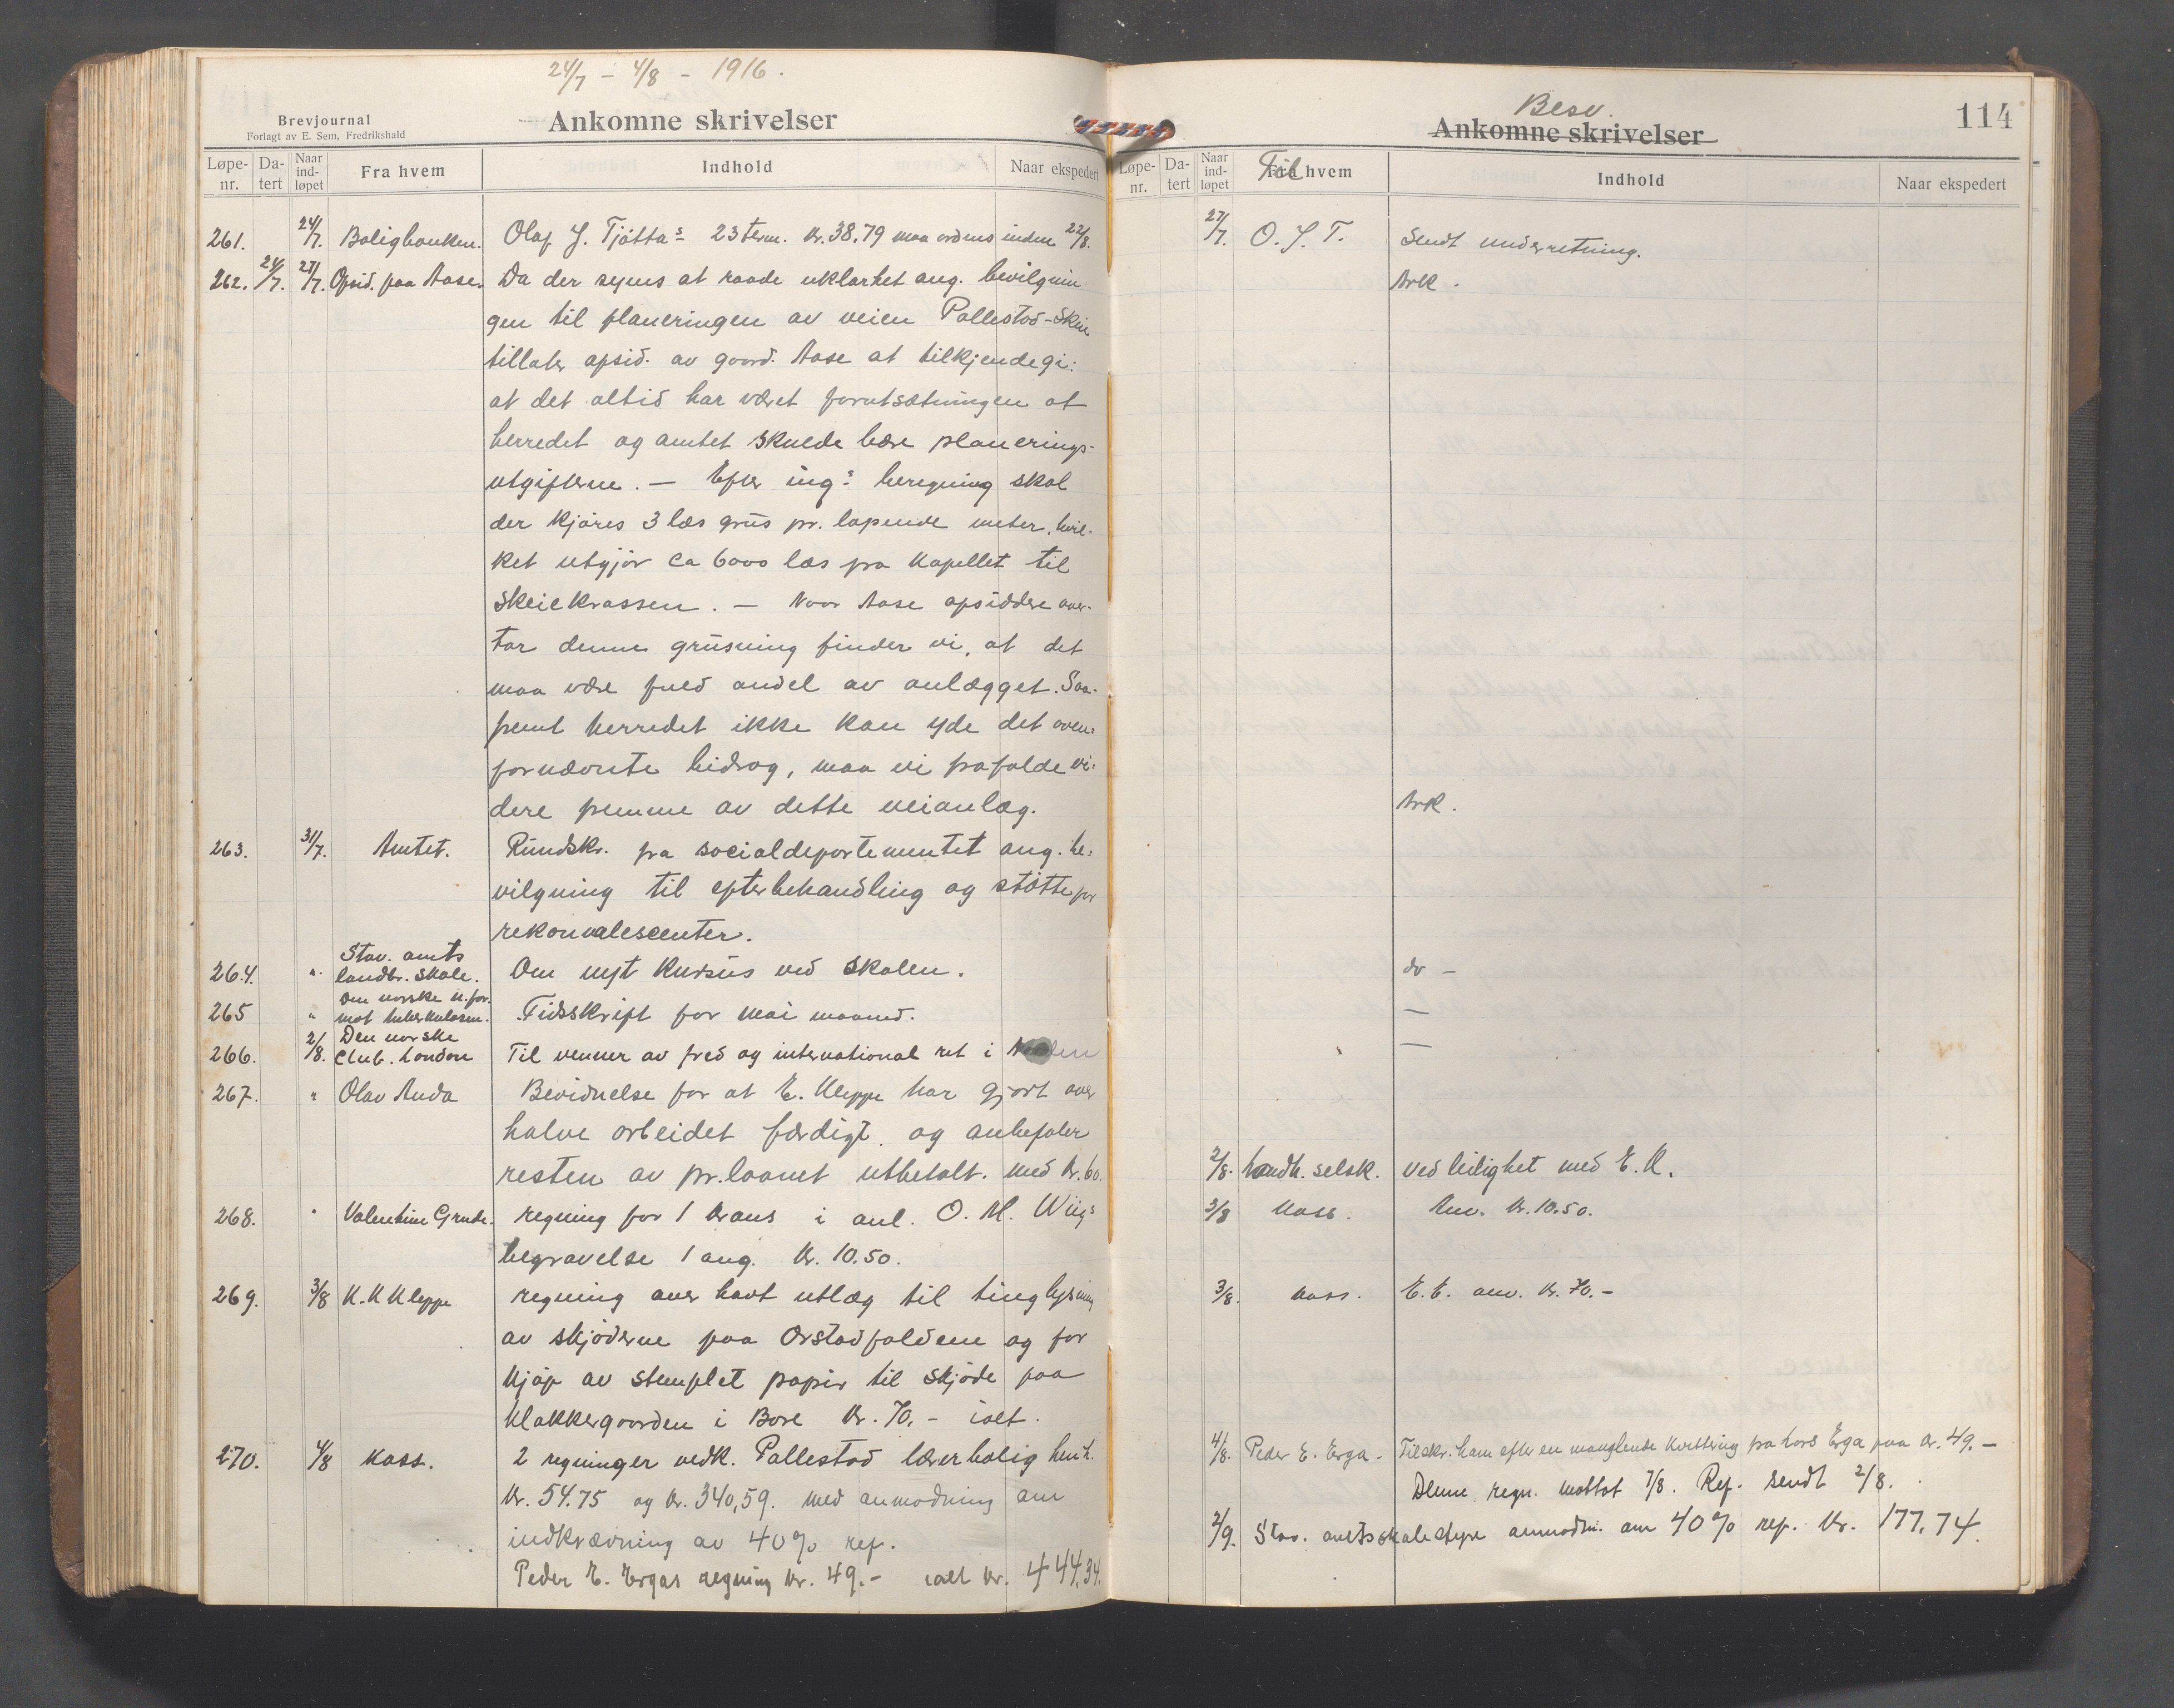 24/7 – 4/8 – 1916.
Brevjournal
Forlagt av E. Sem, Fredrikshald
Ankomne skrivelser
Løpe-nr. Da-tert Naar ind-løpet Fra hvem Indhold Naar ekspedert
261. 24/7. Boligbanken. Olaf J. Tjøtta's 23 term. kr. 38.79 maa ordnes inden 22/8.
262. 24/7. 27/7. Opsid. paa Aase. Da der synes at raade uklarhet ang. bevilgnin
gen til planeringen av veien Pallestad-Skeie
tillater opsid. av gaard. Aase at tilkjendegi:
at det altid har været forutsætningen at
herredet og amtet skulde bære planerings-
utgifterne. – Efter ing's beregning skal
der kjøres 3 læs grus pr. løpende meter, hvil-
ket utgjør ca 6000 læs fra kapellet til
Skeiekrossen. – Naar Aase opsiddere over-
tar denne grusning finder vi, at det
maa være fuld andel av anlægget. Saa-
fremt herredet ikke kan yde det oven-
fornævnte bidrag, maa vi frafalde vi-
dere fremme av dette veianlæg.
263. 31/7. Amtet. Rundskr. fra socialdepartementet ang. be-
vilgning til efterbehandling og støtte for
rekonvalescenter.
Stav. amts
264. " landbr. skole. Om nyt kursus ved skolen.
Den norske n. for.
265 " mot tuberkulosen. Tidsskrift for mai maaned.
Den norske
266. 2/8. Club. London Til venner av fred og international ret i Norden
267. " Olav Anda Bevidnelse for at E. Kleppe har gjort over
halve arbeidet færdigt og anbefaler
resten av pr.laanet utbetalt. med kr. 60.
268. " Valentine Grude. regning for 1 krans i anl. O. M. Wiig's
begravelse 1 aug. kr. 10.50.
269. 3/8 K. K Kleppe regning over havt utlæg til tinglysning
av skjøderne paa Orstadfoldene og for
kjøp av stemplet papir til skjøde paa
Klokkergaarden i Bore kr. 70.– ialt.
270. 4/8 Kass. 2 regninger vedk. Pallestad lærerbolig henh.
kr. 54.75 og kr. 340,59. med anmodning om
indkrævning av 40% ref.
Peder E. Ergas regning kr. 49.– ialt kr. 444,34.
Besv.
Ankomne skrivelser
114
Løpe-nr. Da-tert Naar ind-løpet Til hvem Indhold Naar ekspedert
27/7. O. J. T. Sendt underretning.
Ark.
Ark.
do –
—
—
2/8. Landh. selsk. ved leilighet med E. K.
3/8 Kass. Anv. kr. 10.50.
3/8. Kass. E. E. anv. kr. 70.–
4/8. Peder E. Erga – Tilskr. ham efter en manglende kvittering fra Lars Erga paa kr. 49.–
Denne regn. mottat 7/8. Ref. sendt 2/8.
2/9. Stav. amtsskolestyre anmodn. om 40% ref. kr. 177.74.